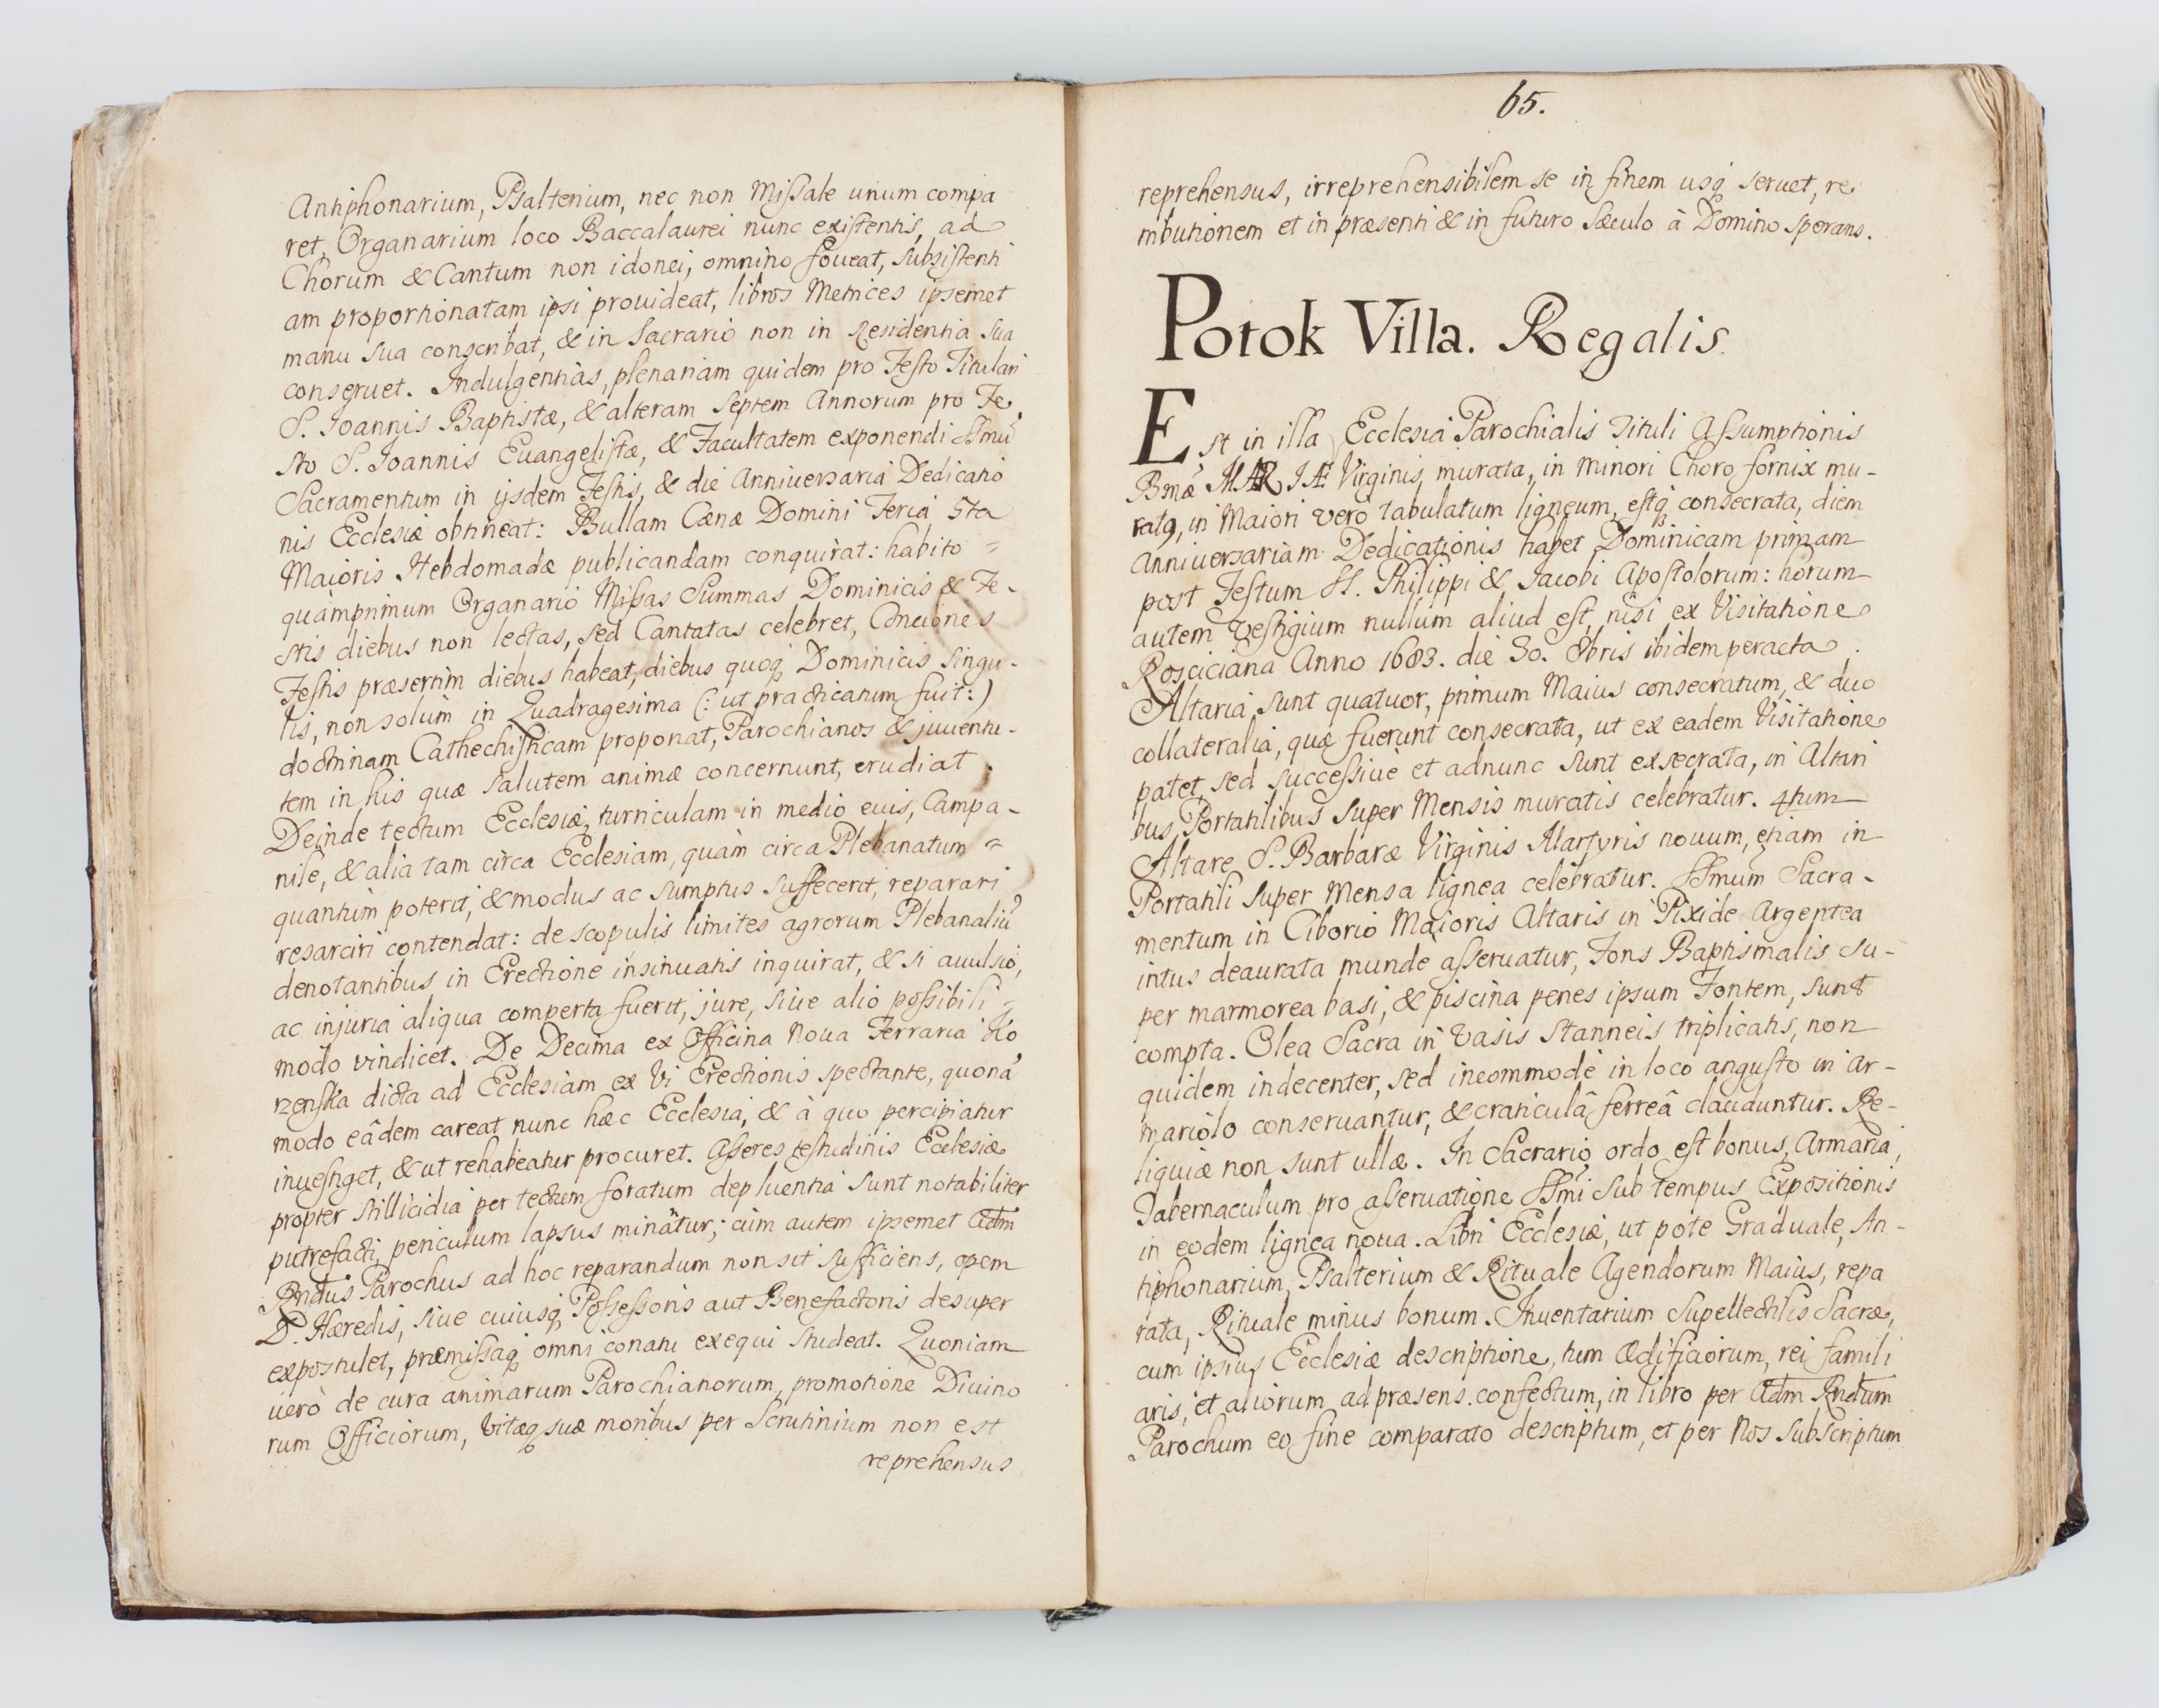 Antiphonarium, Psalterium, nec non Missale unum compa
ret, Organarium loco Baccalaurei nunc existentis, ad
Chorum & Cantum non idonei, omnino foveat, subsistenti
am proportionatam ipsi provideat, libros Metrices ipsemet
manu sua conscribat, & in Sacrario non in Residentia sua
conservet. Indulgentias, plenariam quidem pro Festo Titulari
S. Joannis Baptistæ, & alteram septem Annorum pro Fe
sto S. Joannis Euangelistæ, & Facultatem exponendi SSmũ
Sacramentum in ijsdem Festis, & die Anniuersaria Dedicatio
nis Ecclesiæ obtineat: Bullam Cænæ Domini Feria 5ta
Maioris Hebdomadæ publicandam conquirat: habito =
quàmprimum Organario Missas Summas Dominicis & Fe-
stis diebus non lectas, sed Cantatas celebret, Conciones
Festis præsertim diebus habeat, diebus quoq; Dominicis singu-
lis, non solum in Quadragesima (: ut practicatum fuit:)
doctrinam Cathechisticam proponat, Parochianos & juuentu-
tem in his quæ salutem animæ concernunt, erudiat.
Deinde tectum Ecclesiæ, turriculam in medio euis, Campa-
nile, & alia tam circa Ecclesiam, quàm circa Plebanatum =
quantum poterit, & modus ac sumptus suffecerit, reparari
resarciri contendat: de scopulis limites agrorum Plebanaliũ
denotantibus in Erectione insinuatis inquirat, & si auulsio,
ac injuria aliqua comperta fuerit, jure, siue alio possibili =
modo vindicet. De Decima ex Officina Noua Ferraria Ko
rzenska dicta ad Ecclesiam ex Vi Erectionis spectante, quonã
modo eâdem careat nunc hæc Ecclesia, & à quo percipiatur
inuestiget, & ut rehabeatur procuret. Asseres testudinis Ecclesiæ
propter stillicidia per tectum foratum depluentia sunt notabiliter
putrefacti, periculum lapsus minãtur; cùm autem ipsemet Adm
Rndus Parochus ad hoc reparandum non sit sufficiens, opem
D. Hæredis, siue cuiusq; Possessoris aut Benefactoris desuper
expostulet, præmissaq; omni conatu exequi studeat. Quoniam
uerò de cura animarum Parochianorum, promotione Diuino
rum Officiorum, Vitæq; suæ moribus per Scrutinium non est
reprehensus
65.
reprehensus, irreprehensibilem se in finem usq; seruet, re
tributionem et in præsenti & in futuro sæculo à Domino sperans.
Potok Villa. Regalis.
Est in illa Ecclesia Parochialis Tituli Assumptionis
Bmæ MARIÆ Virginis, murata, in minori Choro fornix mu-
rata, in Maiori vero tabulatum ligneum, estq; consecrata, diem
Anniuersariam Dedicationis habet Dominicam primam
post Festum SS. Philippi & Jacobi Apostolorum: horum
autem vestigium nullum aliud est, nisi ex Visitatione
Rosciciana Anno 1683. die 30. 8bris ibidem peracta.
Altaria sunt quatuor, primum Maius consecratum, & duo
collateralia, quæ fuerunt consecrata, ut ex eadem Visitatione
patet, sed successiuè et adnunc sunt exsecrata, in Altari
bus Portatilibus super Mensis muratis celebratur. 4tum
Altare S. Barbaræ Virginis Martyris nouum, etiam in
Portatili super Mensa lignea celebratur. SSmum Sacra-
mentum in Ciborio Maioris Altaris in Pixide Argentea
intus deaurata mundè asseruatur, Fons Baptismalis su-
per marmorea basi, & piscina penes ipsum Fontem, sunt
compta. Olea Sacra in Vasis stanneis triplicatis, non
quidem indecenter, sed incommodè in loco angusto in Ar-
mariolo conseruantur, & craticulâ ferreâ clauduntur. Re-
liquiæ non sunt ullæ. In Sacrario ordo est bonus, Armaria,
Tabernaculum pro asseruatione SSmi sub tempus Expositionis
in eodem lignea noua. Libri Ecclesiæ, ut pote Graduale, An-
tiphonarium, Psalterium & Rituale Agendorum Maius, repa
rata, Rituale minus bonum. Inuentarium Supellectilis Sacræ,
cum ipsius Ecclesiæ descriptione, tum Ædificiorum, rei famili
aris, et aliorum ad præsens confectum, in libro per Adm Rndum
Parochum eo fine comparato descriptum, et per Nos subscriptum